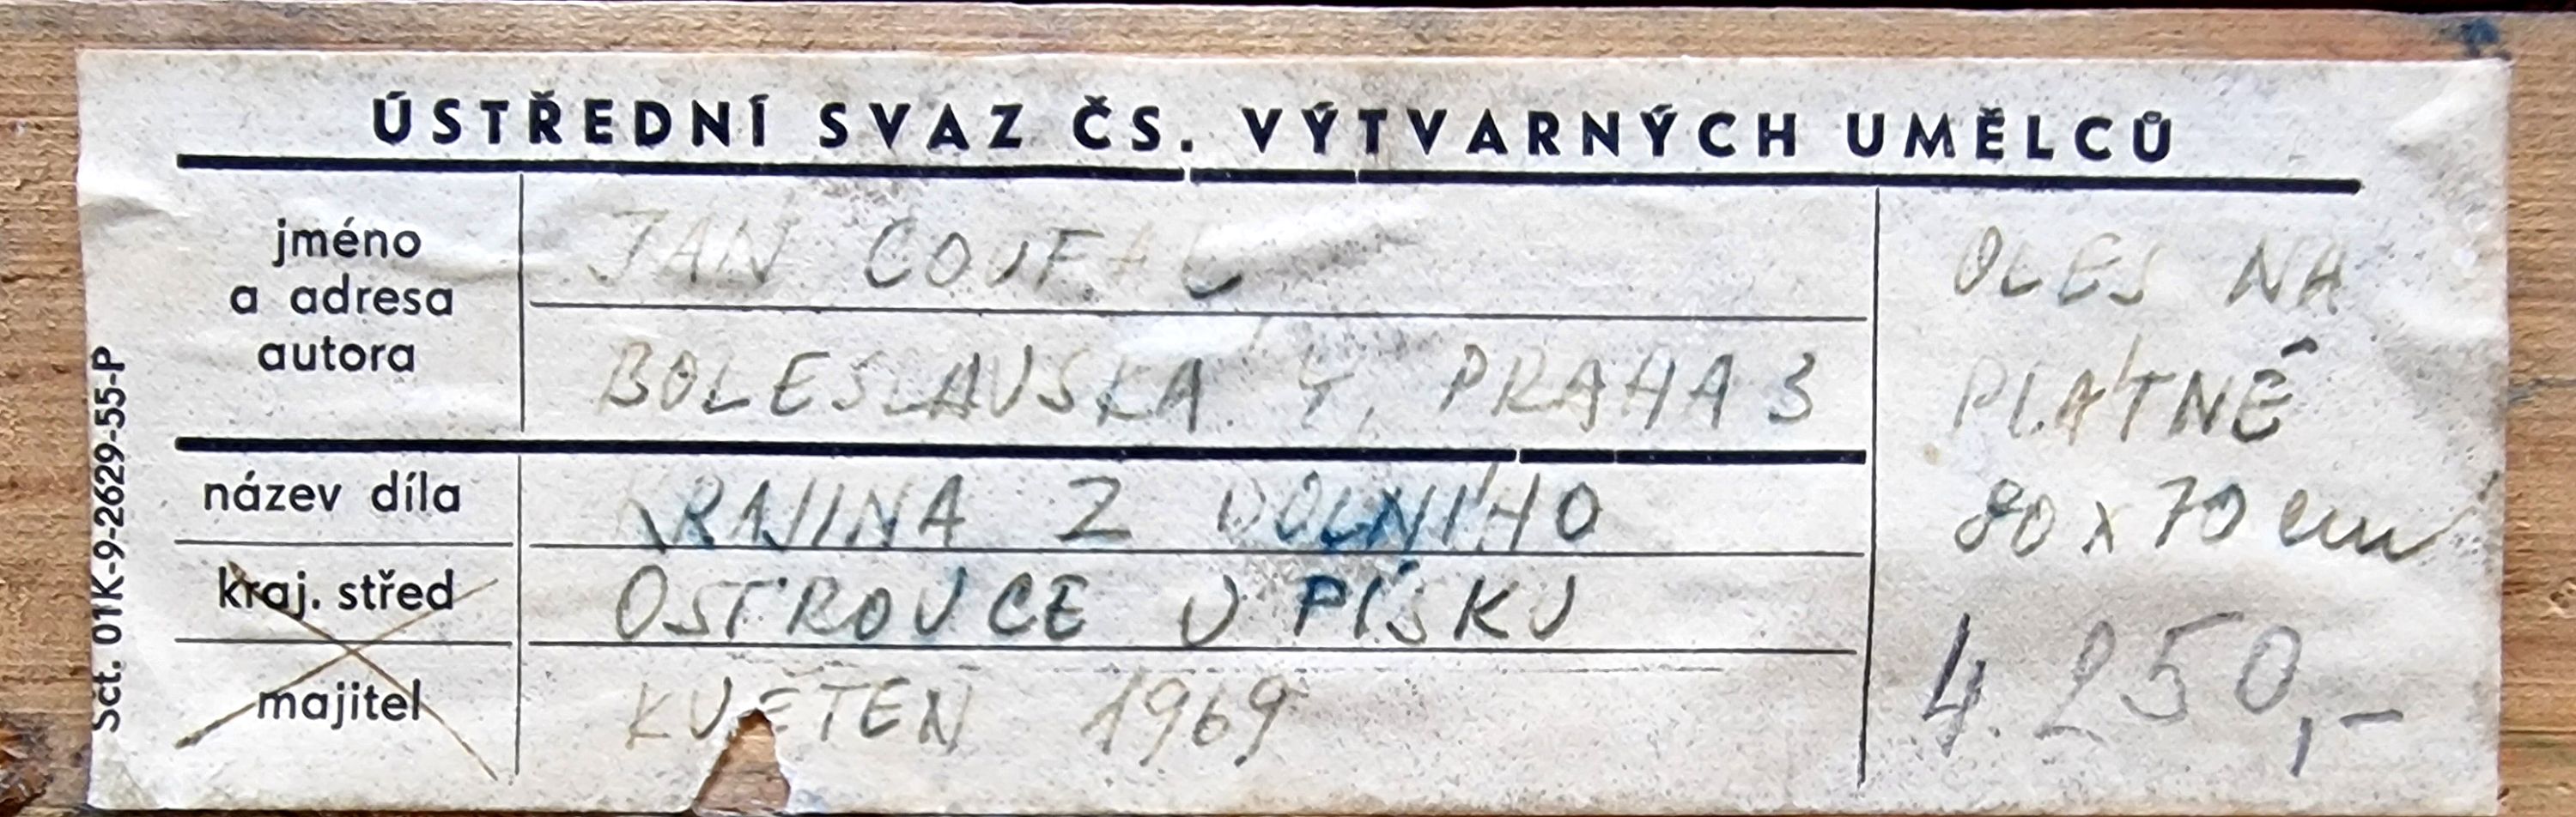 ÚSTŘEDNÍ SVAZ ČS. VÝTVARNÝCH UMĚLCŮ
jméno
a adresa
autora
JAN COUFAL
BOLESLAVSKA 4, PRAHA 3
název díla
KRAJINA Z DOLNÍHO
kraj. střed
OSTROVCE U PÍSKU
majitel
KVĚTEN 1969
OLEJ NA
PLÁTNĚ
80 x 70 cm
4.250,-
Sct. 01K-9-2629-55-P